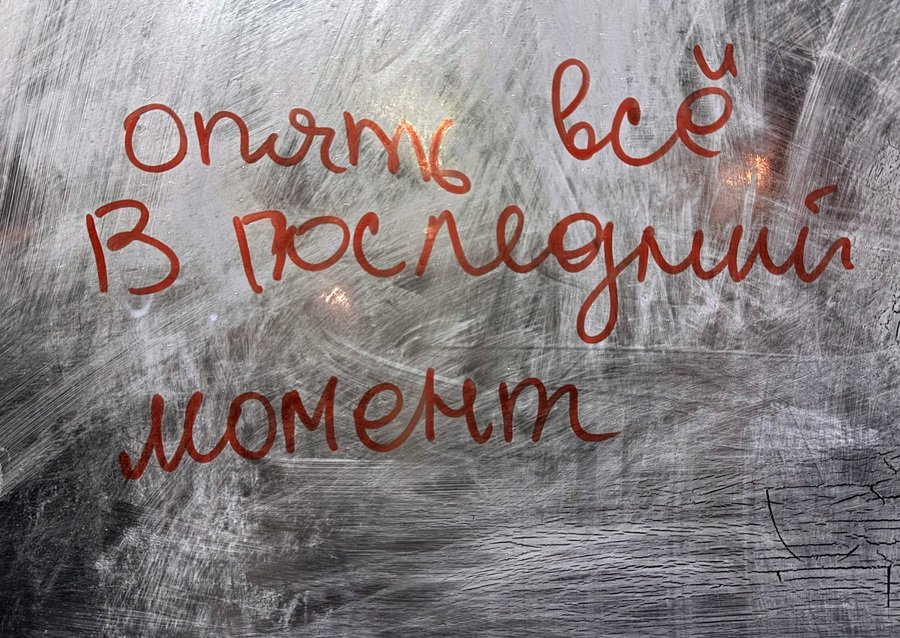 опять всё
в последний
момент